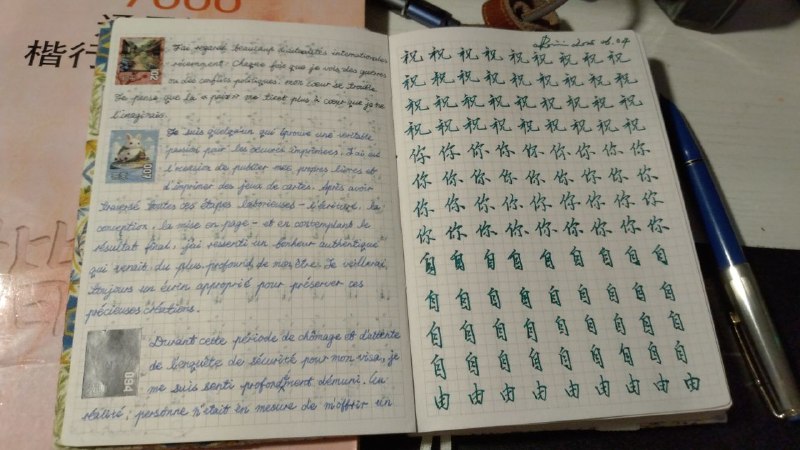 7000
楷行
J'ai regardé beaucoup d'actualités internationales
récemment. Chaque fois que je vois des guerres
ou des conflits politiques, mon cœur se trouble.
Je pense que la « paix » me tient plus à cœur que je ne
l'imaginais.
Je suis quelqu'un qui éprouve une véritable
passion pour les œuvres imprimées. J'ai eu
l'occasion de publier mes propres livres et
d'imprimer des jeux de cartes. Après avoir
traversé toutes ces étapes laborieuses - l'écriture, la
conception, la mise en page - et en contemplant le
résultat final, j'ai ressenti un bonheur authentique
qui venait du plus profond de mon être. Je
toujours un écrin approprié pour préserver ces
précieuses créations.
Durant cette période de chômage et d'attente
de l'enquête de sécurité pour mon visa, je
me suis senti profondément démuni. En
réalité, personne n'était en mesure de m'offrir un
祝 祝 祝 祝 祝 祝 祝 祝 祝
祝 祝 祝 祝 祝 祝 祝 祝 祝
祝 祝 祝 祝 祝 祝 祝 祝 祝
祝 祝 祝 祝 祝 祝 祝 祝 祝
你 你 你 你 你 你 你 你 你
你 你 你 你 你 你 你 你 你
你 你 你 你 你 你 你 你 你
你 你 你 你 你 你 你 你 你
自 自 自 自 自 自 自 自 自
自 自 自 自 自 自 自 自 自
自 自 自 自 自 自 自 自 自
自 自 自 自 自 自 自 自 自
由 由 由 由 由 由 由 由 由